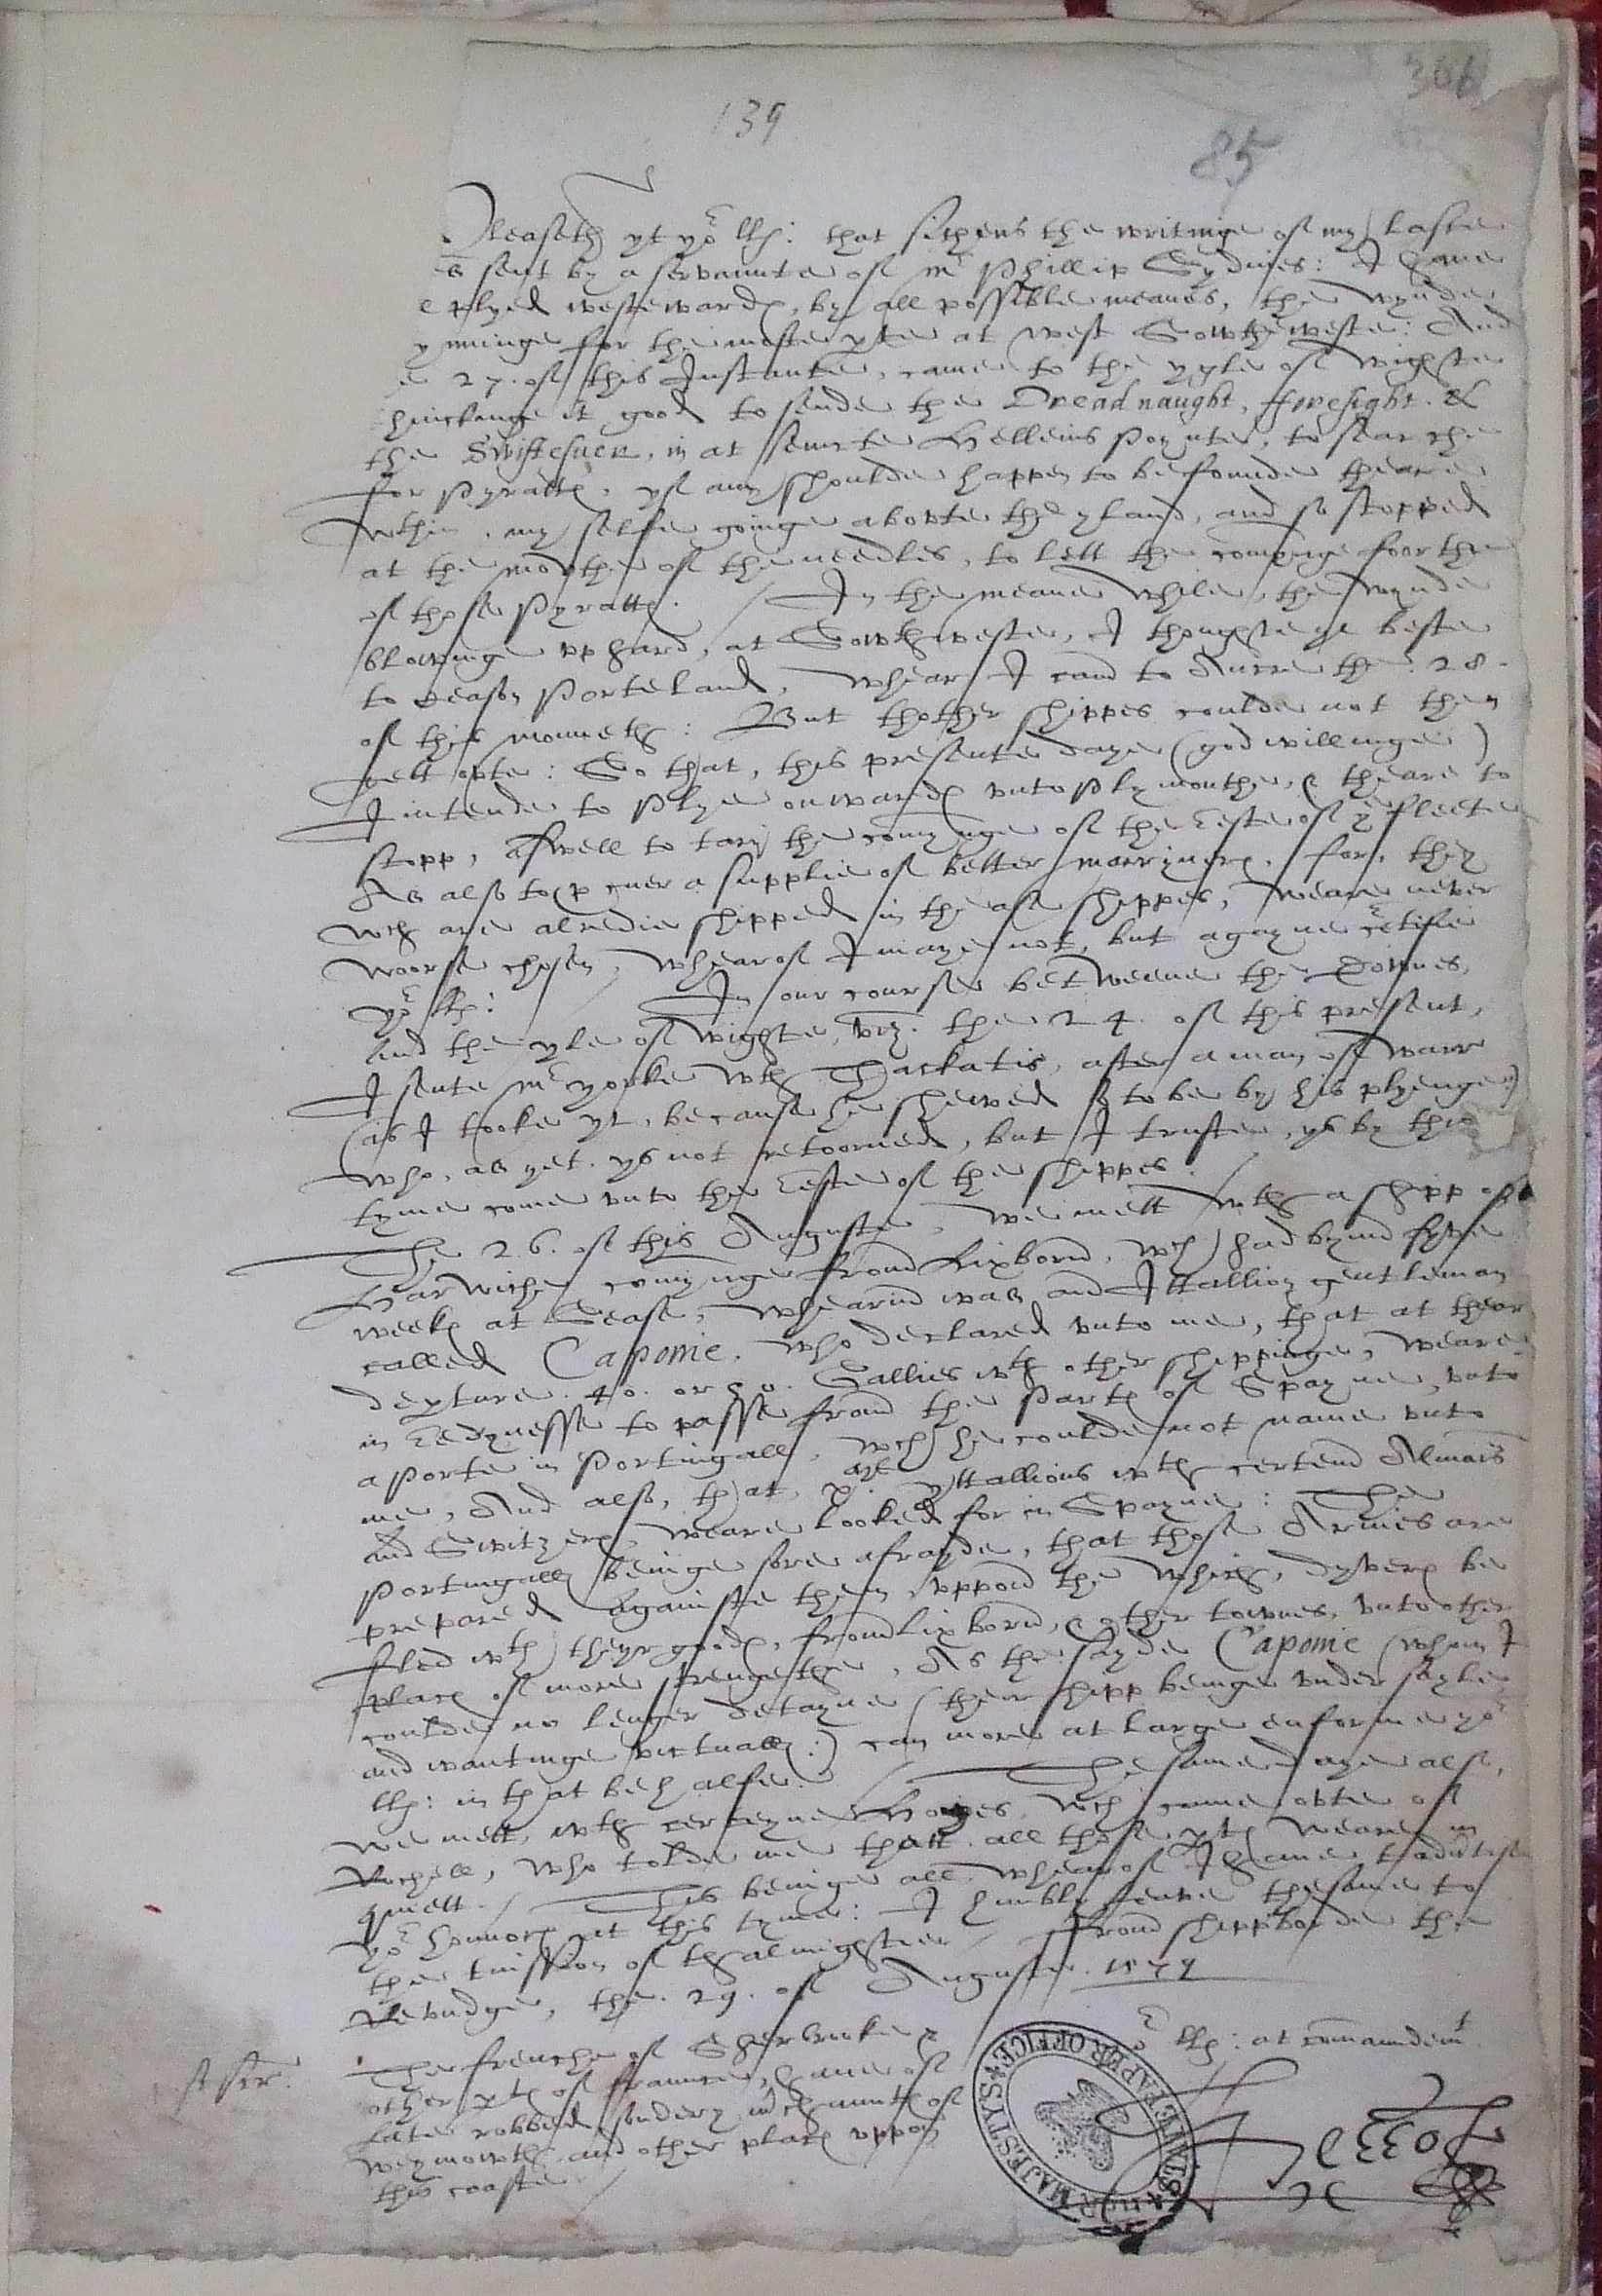 306
139
85
Pleaseth yt yor llp: that sithens the writinge of my laste
sent by a servaunte of Mr Phillip Sydnies: I haue
plyed westewardp, by all possible meanes, the wynde
for the moste pte at west Sowthweste: And
27. of this Instante, came to the yle of wighte
thinckinge it good to sende the Dreadnaught, fforesight. &
the Swiftesuer, in at Seincte Helleins poynte, to searche
for pyratts, yf any shoulde happen to be founde theare
wthin, my selfe goinge abowte the yland, and so stopped
at the mowthe of the needles, to lett the comynge foorthe
of those pyratts. / In the meane while, the wynde
blowinge vp hard, at Sowthweste, I thoughte yt beste
to Portelande, whear I cam to Ancre the 28.
of this monneth: But thother shippes coulde not then
gett owte: So that, this presente daye (god willinge)
I intende to plye onwards vnto plymouthe, & theare to
stopp, aswell to tary the comynge of the reste of ye fleete
As also to pcuer a supplie of better marryners. for, they
wch are alredie shipped in thease shippes, weare never
woorse chosen, whearof I maye not, but agayne certifie
yor llp: / In our course betweene the Downes,
and the yle of wighte, viz. the 24. of this present,
I sente Mr yorke wth Thackatis, after a man of warr
(as I tooke yt, because he shewed so to be by his plyenge)
who, as yet. ys not retoorned, but I truste, ys by this
tyme come vnto the reste of the shippes. /
The 26. of this Auguste, we mett wth a shipp of
Harwiche comynge from Lixborn, wch had byn fyve
weeks at Sease, whearin was an Ittallion gentleman
called Caponie, who declared vnto me, that at thear
depture. 40. or 50. Gallies wth other shippinge, weare
in redynesse to passe from the parts of Spayne, vnto
a porte in Portingall, wch he coulde not name vnto
me, And also, that, xM yttallions wth certen Almains
and Switzers, weare looked for in Spayne: The
Portingalls beinge sore afrayde, that those Armies are
prepared againste them, vppon the which, dyvers be
fled wth theyr goods, from Lixborn, & other townes, vnto other
places of more strengethe, As the sayde Caponie (whom I
coulde no lenger detayne (thear shipp beinge vnder sayle
and wantinge victualls:) can more at large enforme yor
llp: in that behalfe. / The same daye also,
we mett, wth certeyne Hoyes, wch came owte of
Rochell, who tolde me thatt all those pts weare in
quiett. / This beinge all, whearof I haue t'advtise
yor honnors at this tyme: I humbly leave the same to
the tuission of th'almightie / From shippborde the
Revendge, the. 29. of Auguste. 1579
r llp: at comaundemt
The frenche of Sherbrooke &
other pts of fraunce, haue of
late robbed sondery mchaunts of
weymowth and other places vppon
this coaste. /
HER MAJESTY'S STATE PAPER OFFICE